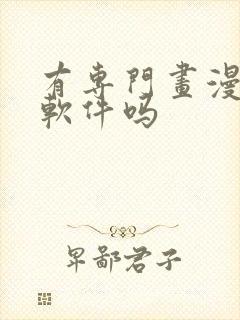 有專門畫漫
軟件吗
卑鄙君子